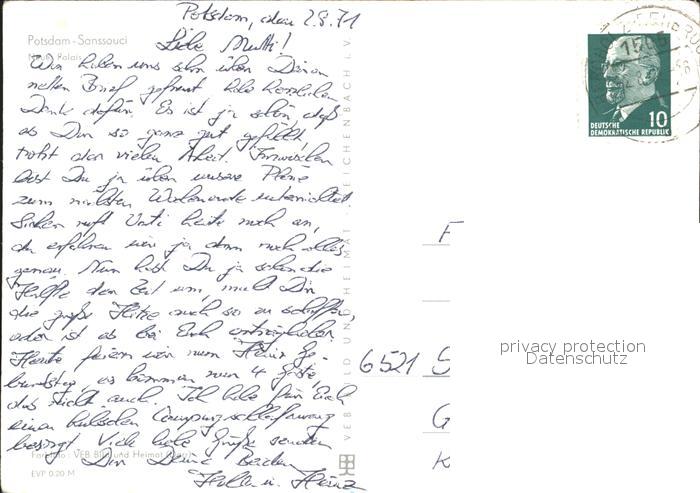 Potsdam, den 2.8.71
Potsdam - Sanssouci
Neues Palais
Liebe Mutti!
Wir haben uns sehr über Deinen
netten Brief gefreut, habe herzlichen
Dank dafür. Es ist ja schön, daß
es Dir so ganz gut gefällt,
trotz der vielen Arbeit. Inzwischen
bist Du ja über unsere Pläne
zum nächsten Wochenende unterrichtet.
Sicher ruft Vati heute noch an,
da erfahren wir ja dann noch alles
genau. Nun hast Du ja schon die
Hälfte der Zeit um, macht Dir
die große Hitze auch so zu schaffen,
oder ist es bei Euch erträglicher.
Heute feiern wir nun Heinz Ge-
burtstag, es kommen nur 4 Gäste,
das reicht auch. Ich habe für Euch
einen hübschen Campingschlafanzug
besorgt. Viele liebe Grüße senden
Dir Deine Beiden
u. Heinz
VEB BILD UND HEIMAT REICHENBACH i. V.
Farbfoto: VEB Bild und Heimat
EVP 0.20 M
DEUTSCHE 10
DEMOKRATISCHE REPUBLIK
F
6521 S
G
K
privacy protection
Datenschutz